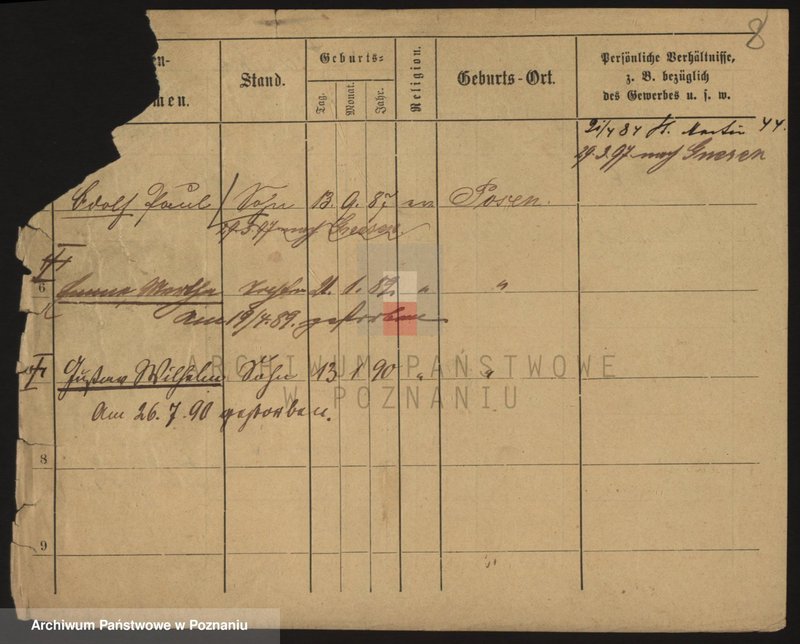 8
en-
men.
Stand.
Geburts-
Tag.
Monat.
Jahr.
Religion.
Geburts-Ort.
Persönliche Verhältnisse,
z. B. bezüglich
des Gewerbes u. s. w.
29.3.97 nach Gnesen
Adolf Paul Sohn 13 9. 87 ev Posen.
29.3.97 nach Gnesen
6
Emma Martha Tochter 21. 1. 89. " "
Am 19/4.89. gestorben
Gustav Wilhelm Sohn 13 1 90 " "
Am 26.7.90 gestorben.
8
9
"
ARCHIWUM PAŃSTWOWE
W POZNANIU
Archiwum Państwowe w Poznaniu